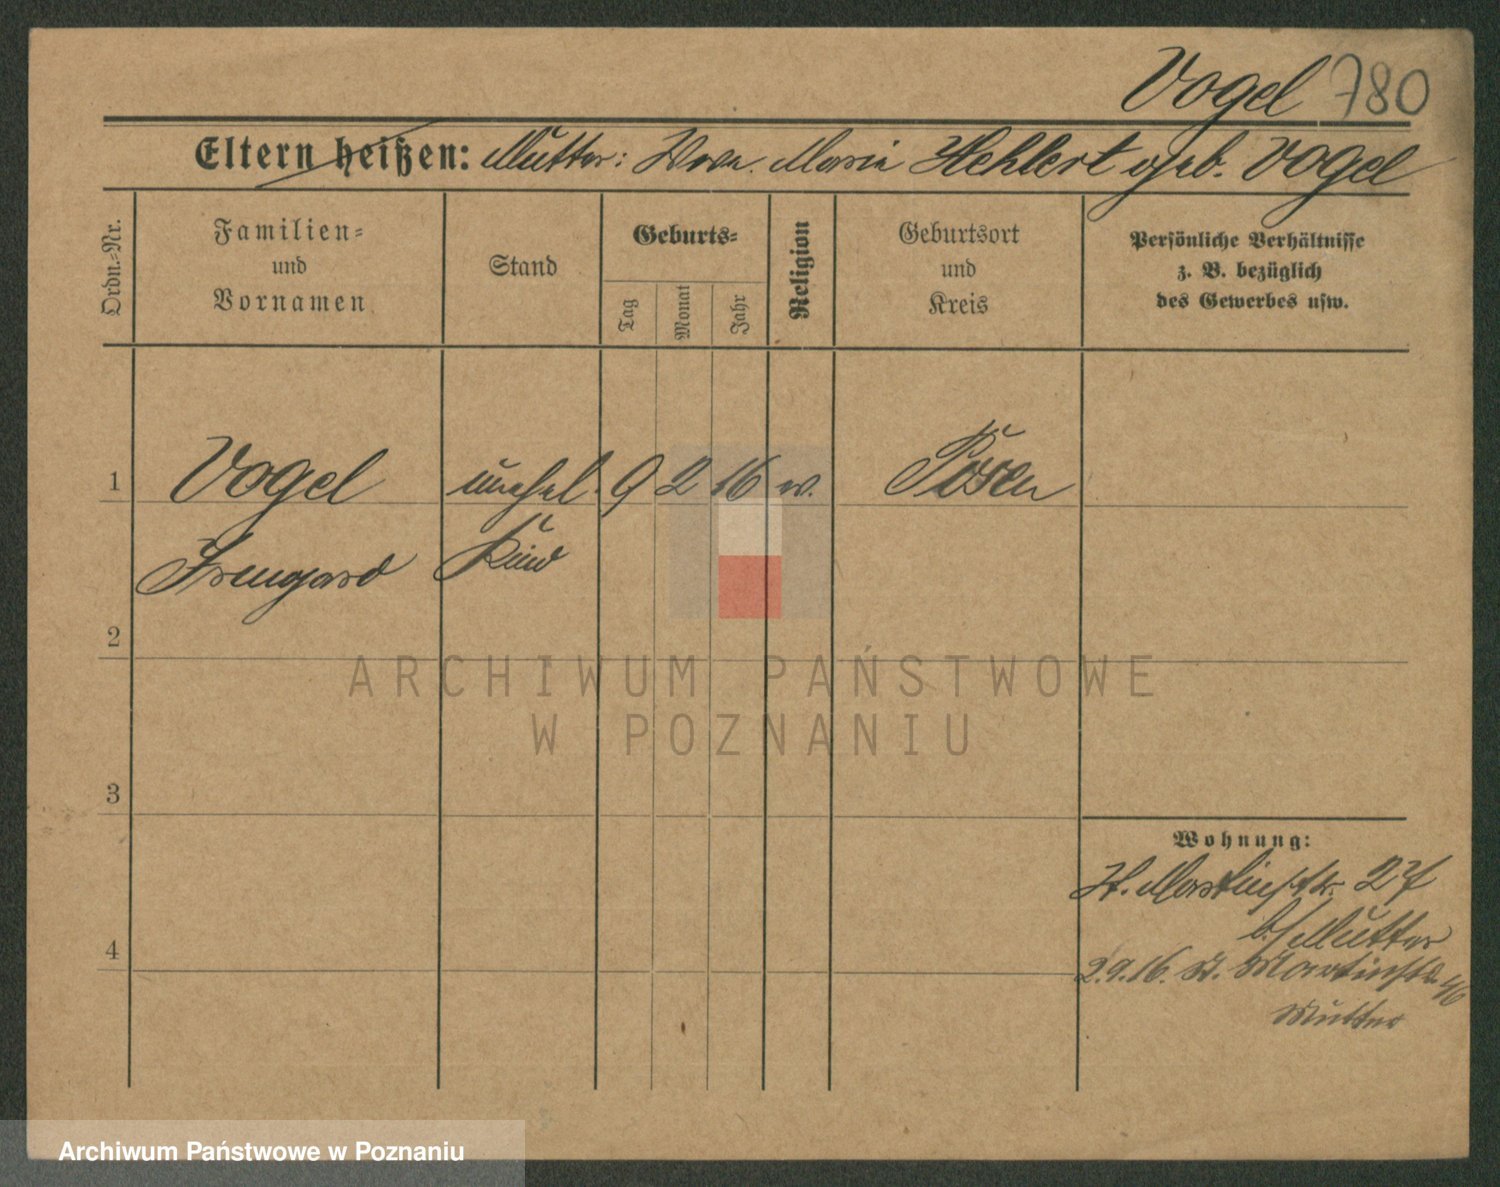 Vogel 780
Eltern heißen: Mutter: Wwe. Maria Hehlert geb. Vogel
Ordn.-Nr.
Familien-
und
Vornamen
Stand
Geburts-
Tag
Monat
Jahr
Religion
Geburtsort
und
Kreis
Persönliche Verhältnisse
z. B. bezüglich
des Gewerbes usw.
1 Vogel unehel. 9 2 16 w. Posen
Irmgard Kind
2
3
4
Wohnung:
St. Martinstr. 27
b/Mutter
2.9.16. St. Martinstr. 46
Mutter
ARCHIWUM PAŃSTWOWE
W POZNANIU
Archiwum Państwowe w Poznaniu